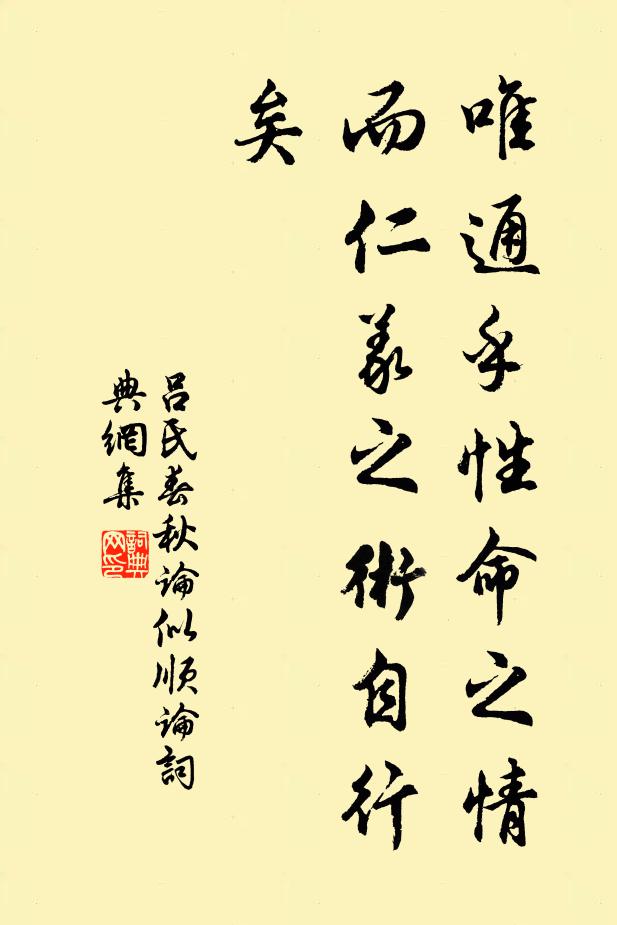 唯通乎性命之情
而仁义之術自行
矣
吕氏春秋論似順論詞
典網集
詞典网印